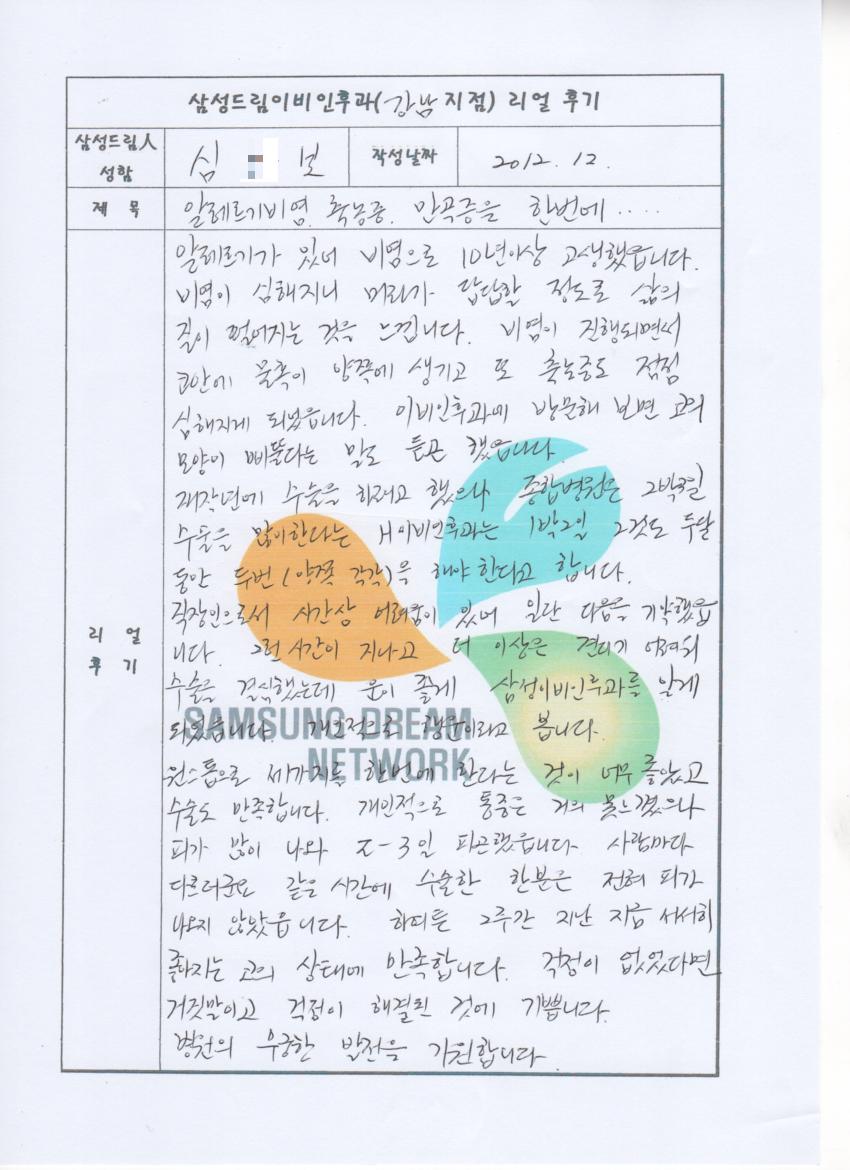 삼성드림이비인후과(강남 지점) 리얼 후기
삼성드림人 성함
심 보
작성날짜
2012. 12.
제 목
알레르기비염, 축농증, 만곡증을 한번에 ....
리 얼 후 기
알레르기가 있어 비염으로 10년이상 고생했습니다.
비염이 심해지니 머리가 답답할 정도로 삶의
질이 떨어지는 것을 느낍니다. 비염이 진행되면서
코안에 물혹이 양쪽에 생기고 또 축농증도 점점
심해지게 되었습니다. 이비인후과에 방문해 보면 코의
모양이 삐뚤다는 말도 듣곤 했습니다.
재작년에 수술을 하려고 했으나 종합병원은 2박3일
수술을 많이한다는 H이비인후과는 1박2일 그것도 두달
동안 두번(양쪽 각각)을 해야 한다고 합니다.
직장인으로서 시간상 어려움이 있어 일단 다음을 기약했습
니다. 그런 시간이 지나고 더 이상은 견디기 어려워
수술을 결심했는데 운이 좋게 삼성이비인후과를 알게
되었습니다. 개인적으로 행운이라고 봅니다.
SAMSUNG DREAM
NETWORK
원스톱으로 세가지를 한번에 한다는 것이 너무 좋았고
수술도 만족합니다. 개인적으로 통증은 거의 못느꼈으나
피가 많이 나와 2-3일 피곤했습니다. 사람마다
다르더군요 같은 시간에 수술한 한분은 전혀 피가
나오지 않았습니다. 하여튼 2주간 지난 지금 서서히
좋아지는 코의 상태에 만족합니다. 걱정이 없었다면
거짓말이고 걱정이 해결된 것에 기쁩니다.
병원의 무궁한 발전을 기원합니다.